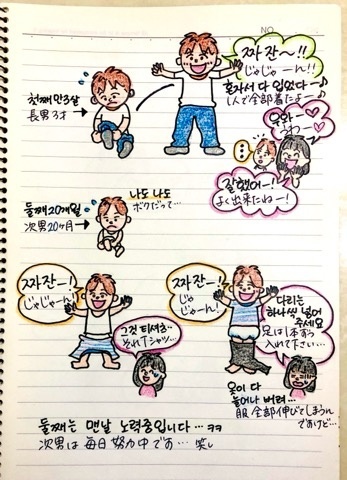 NO.
짜잔~!!
じゃじゃーん!!
혼자서 다 입었다~♪
1人で全部着たよー♪
첫째 만3살
長男3才
우와~
うわー
잘했어~!
よく出来たねー!
나도 나도
ボクだって…
둘째 20개월
次男20ヶ月
짜잔~!
じゃじゃーん!
그것 티셔츠…
それTシャツ…
짜잔~!
じゃ
じゃーん!
다리는
하나씩 넣어
주세요
足は1本ずつ
入れて下さい…
옷이 다
늘어나 버려…
服全部伸びてしまうん
ですけど…
둘째는 맨날 노력중입니다…ㅋㅋ
次男は毎日努力中です…笑